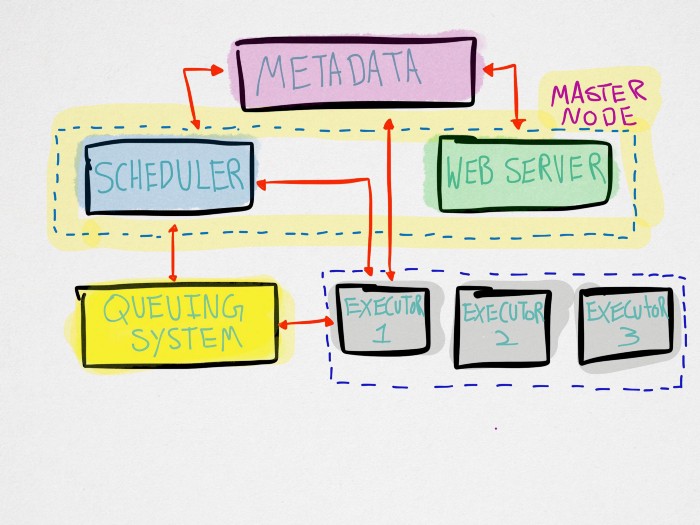 METADATA
MASTER
NODE
SCHEDULER
WEB SERVER
QUEUING
SYSTEM
EXECUTOR
1
EXECUTOR
2
EXECUTOR
3